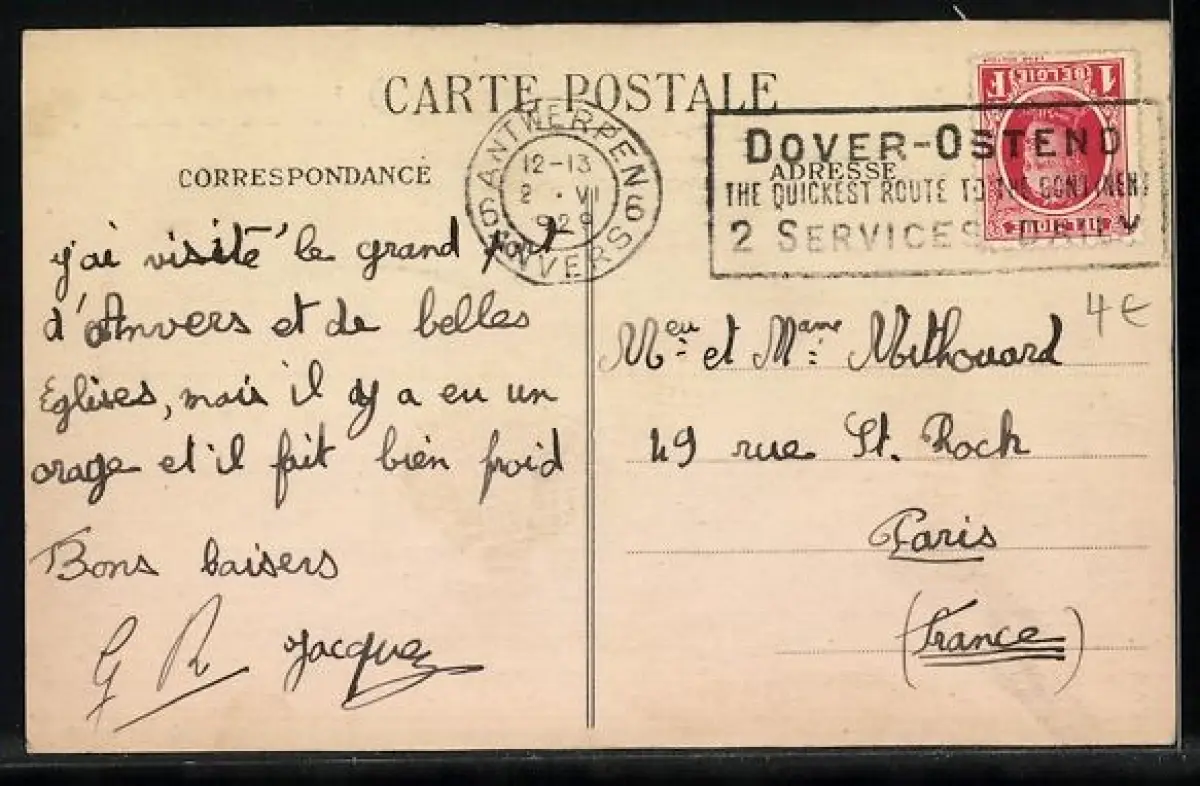 CARTE POSTALE
CORRESPONDANCE
ADRESSE
ANTWERPEN
12-13
2 · VII
1929
6 6
ANVERS
DOVER-OSTEND
THE QUICKEST ROUTE TO THE CONTINENT
2 SERVICES DAILY
1F BELGIE
BELGIQUE
4€
j'ai visité le grand port
d'Anvers et de belles
Eglises, mais il y a eu un
orage et il fait bien froid
Bons baisers
G R Jacques
Meu et Mame Mithouard
49 rue St. Roch
Paris
(France)